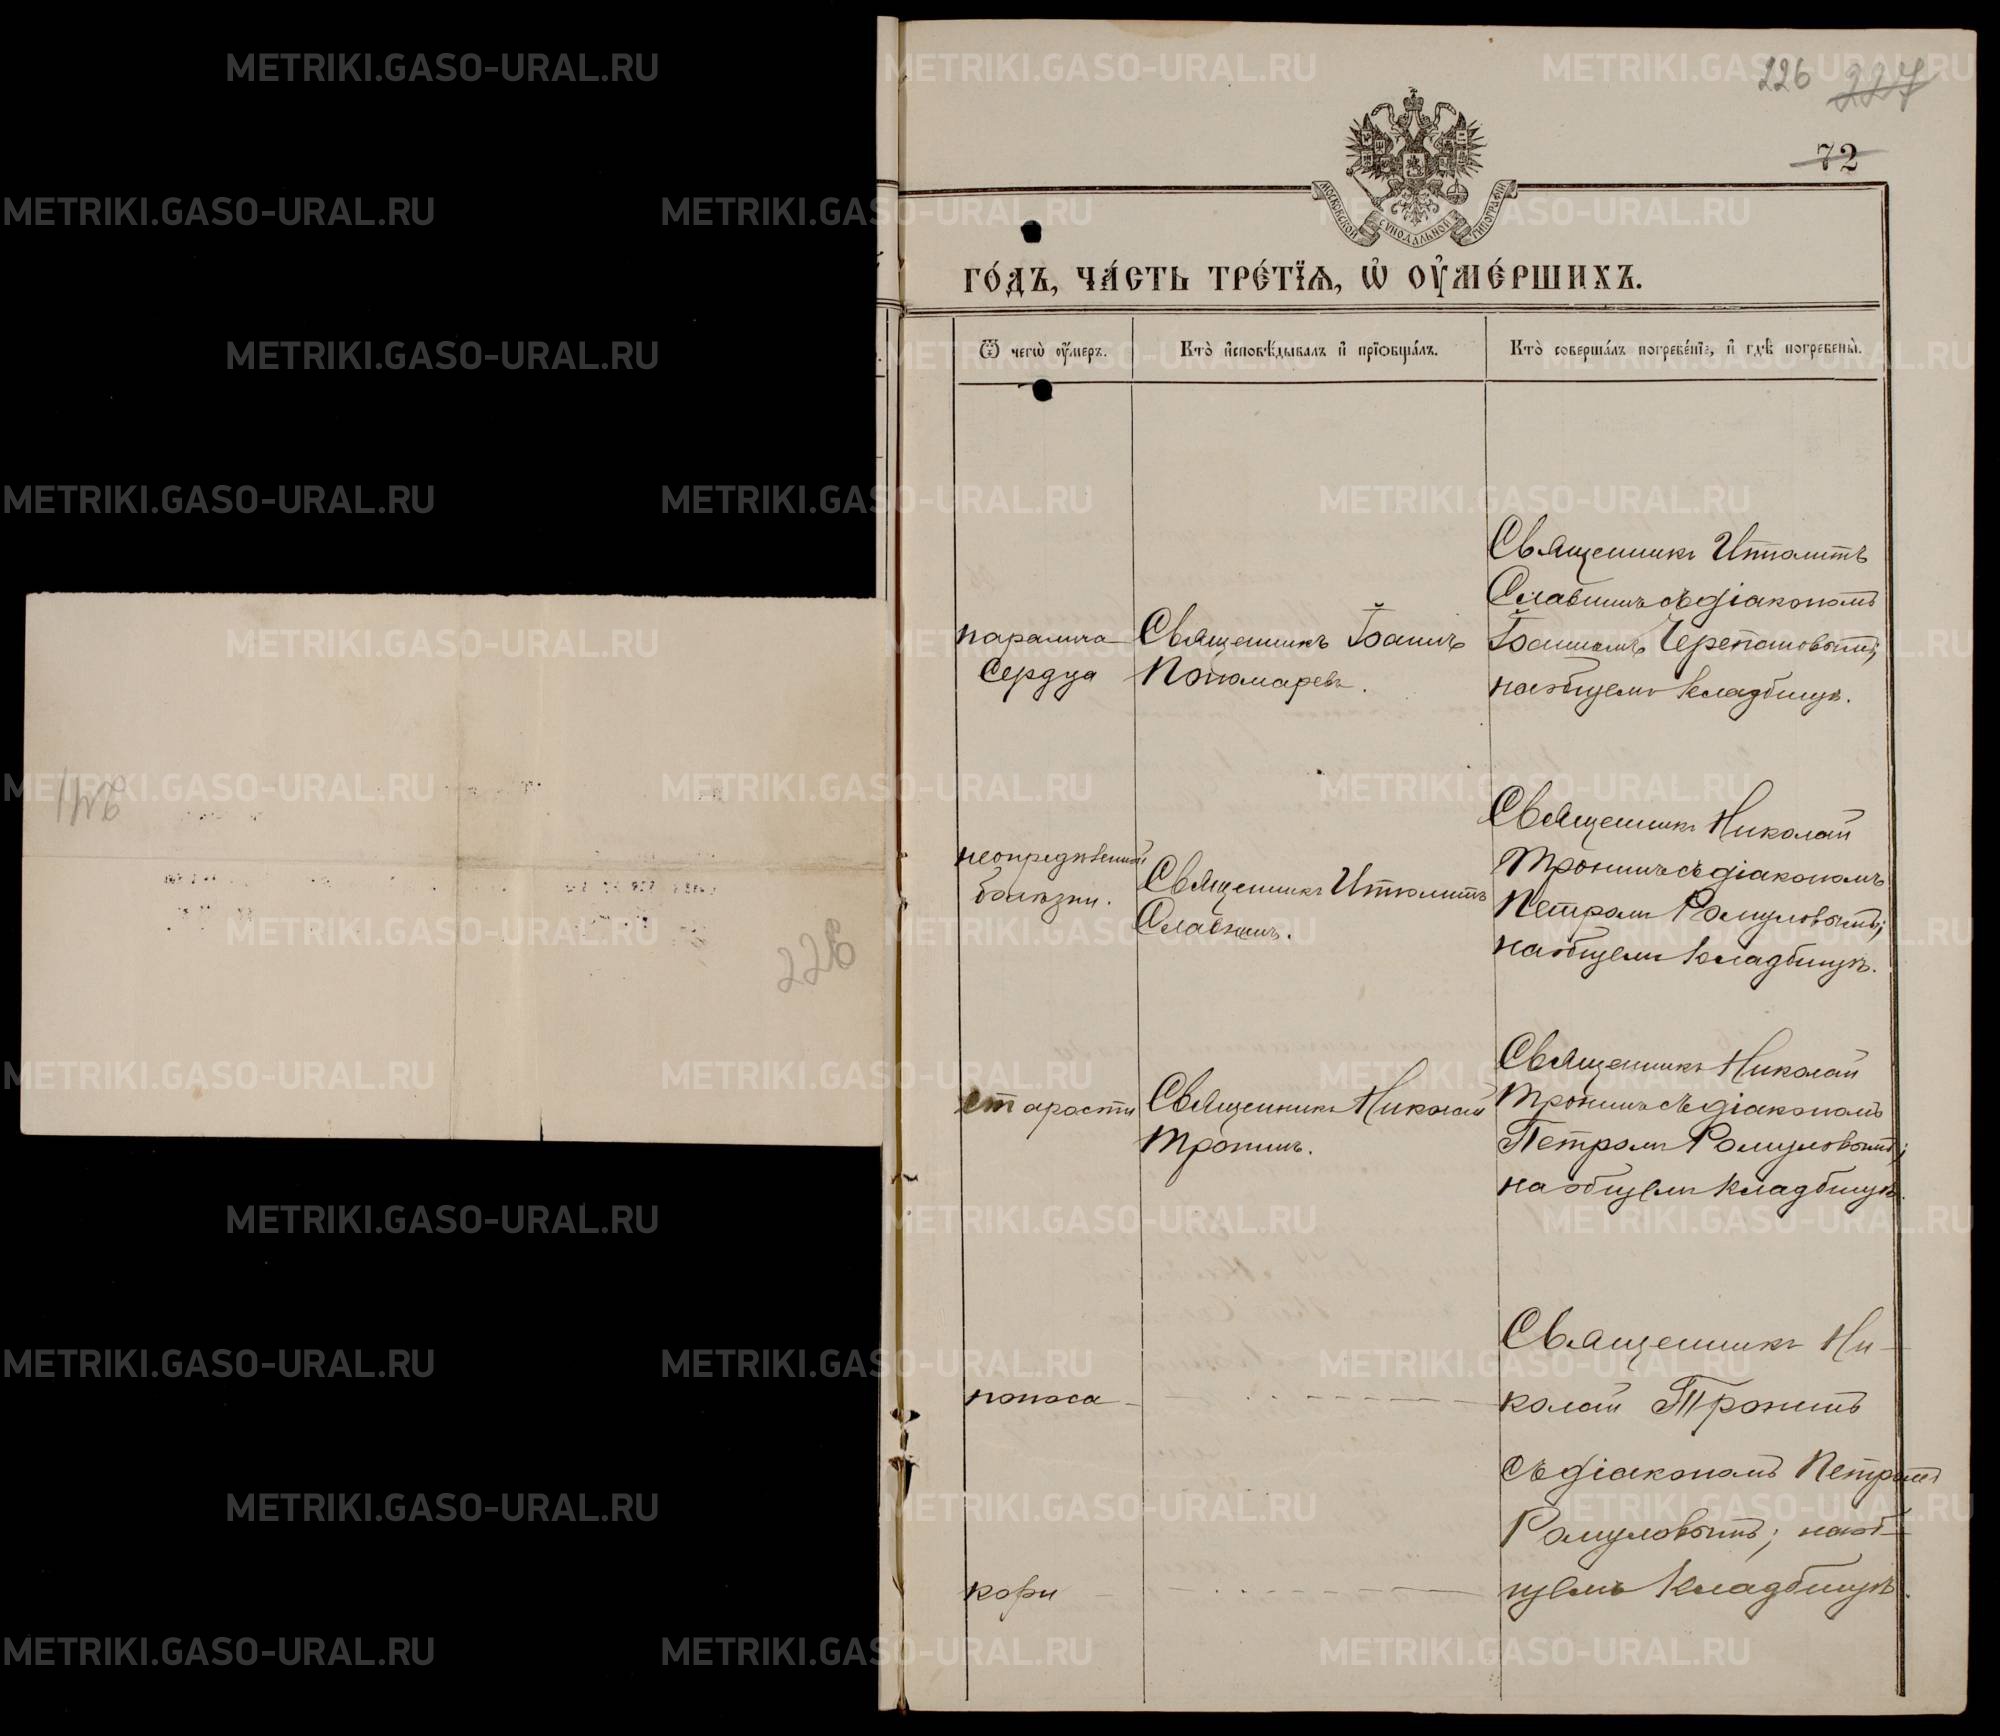 226 227
72
МОСКОВСКОЙ СУНОДАЛЬНОЙ ТИПОГРАФІИ
ГО́ДЪ, ЧА́СТЬ ТРЕ́ТІѦ, Ѡ҆ ОУ҆МЕ́РШИХЪ.
Ѿ чегѡ̀ оу҆́меръ.
Кто̀ и҆сповѣ́дывалъ и҆ прїѡбща́лъ.
Кто̀ соверша́лъ погребе́нїе, и҆ гдѣ̀ погребены̀.
паралича
сердца
Священникъ Іоаннъ
Пономаревъ.
Священникъ Ипполитъ
Славнинъ съ діакономъ
Іоанномъ Черепановымъ;
на общемъ кладбищѣ.
неопредѣленной
болѣзни.
Священникъ Ипполитъ
Славнинъ.
Священникъ Николай
Тронинъ съ діакономъ
Петромъ Ромуловымъ;
на общемъ кладбищѣ.
старости
Священникъ Николай
Тронинъ.
Священникъ Николай
Тронинъ съ діакономъ
Петромъ Ромуловымъ;
на общемъ кладбищѣ.
поноса
Священникъ Ни-
колай Тронинъ
съ діакономъ Петромъ
Ромуловымъ; на об-
щемъ кладбищѣ.
кори
226
METRIKI.GASO-URAL.RU